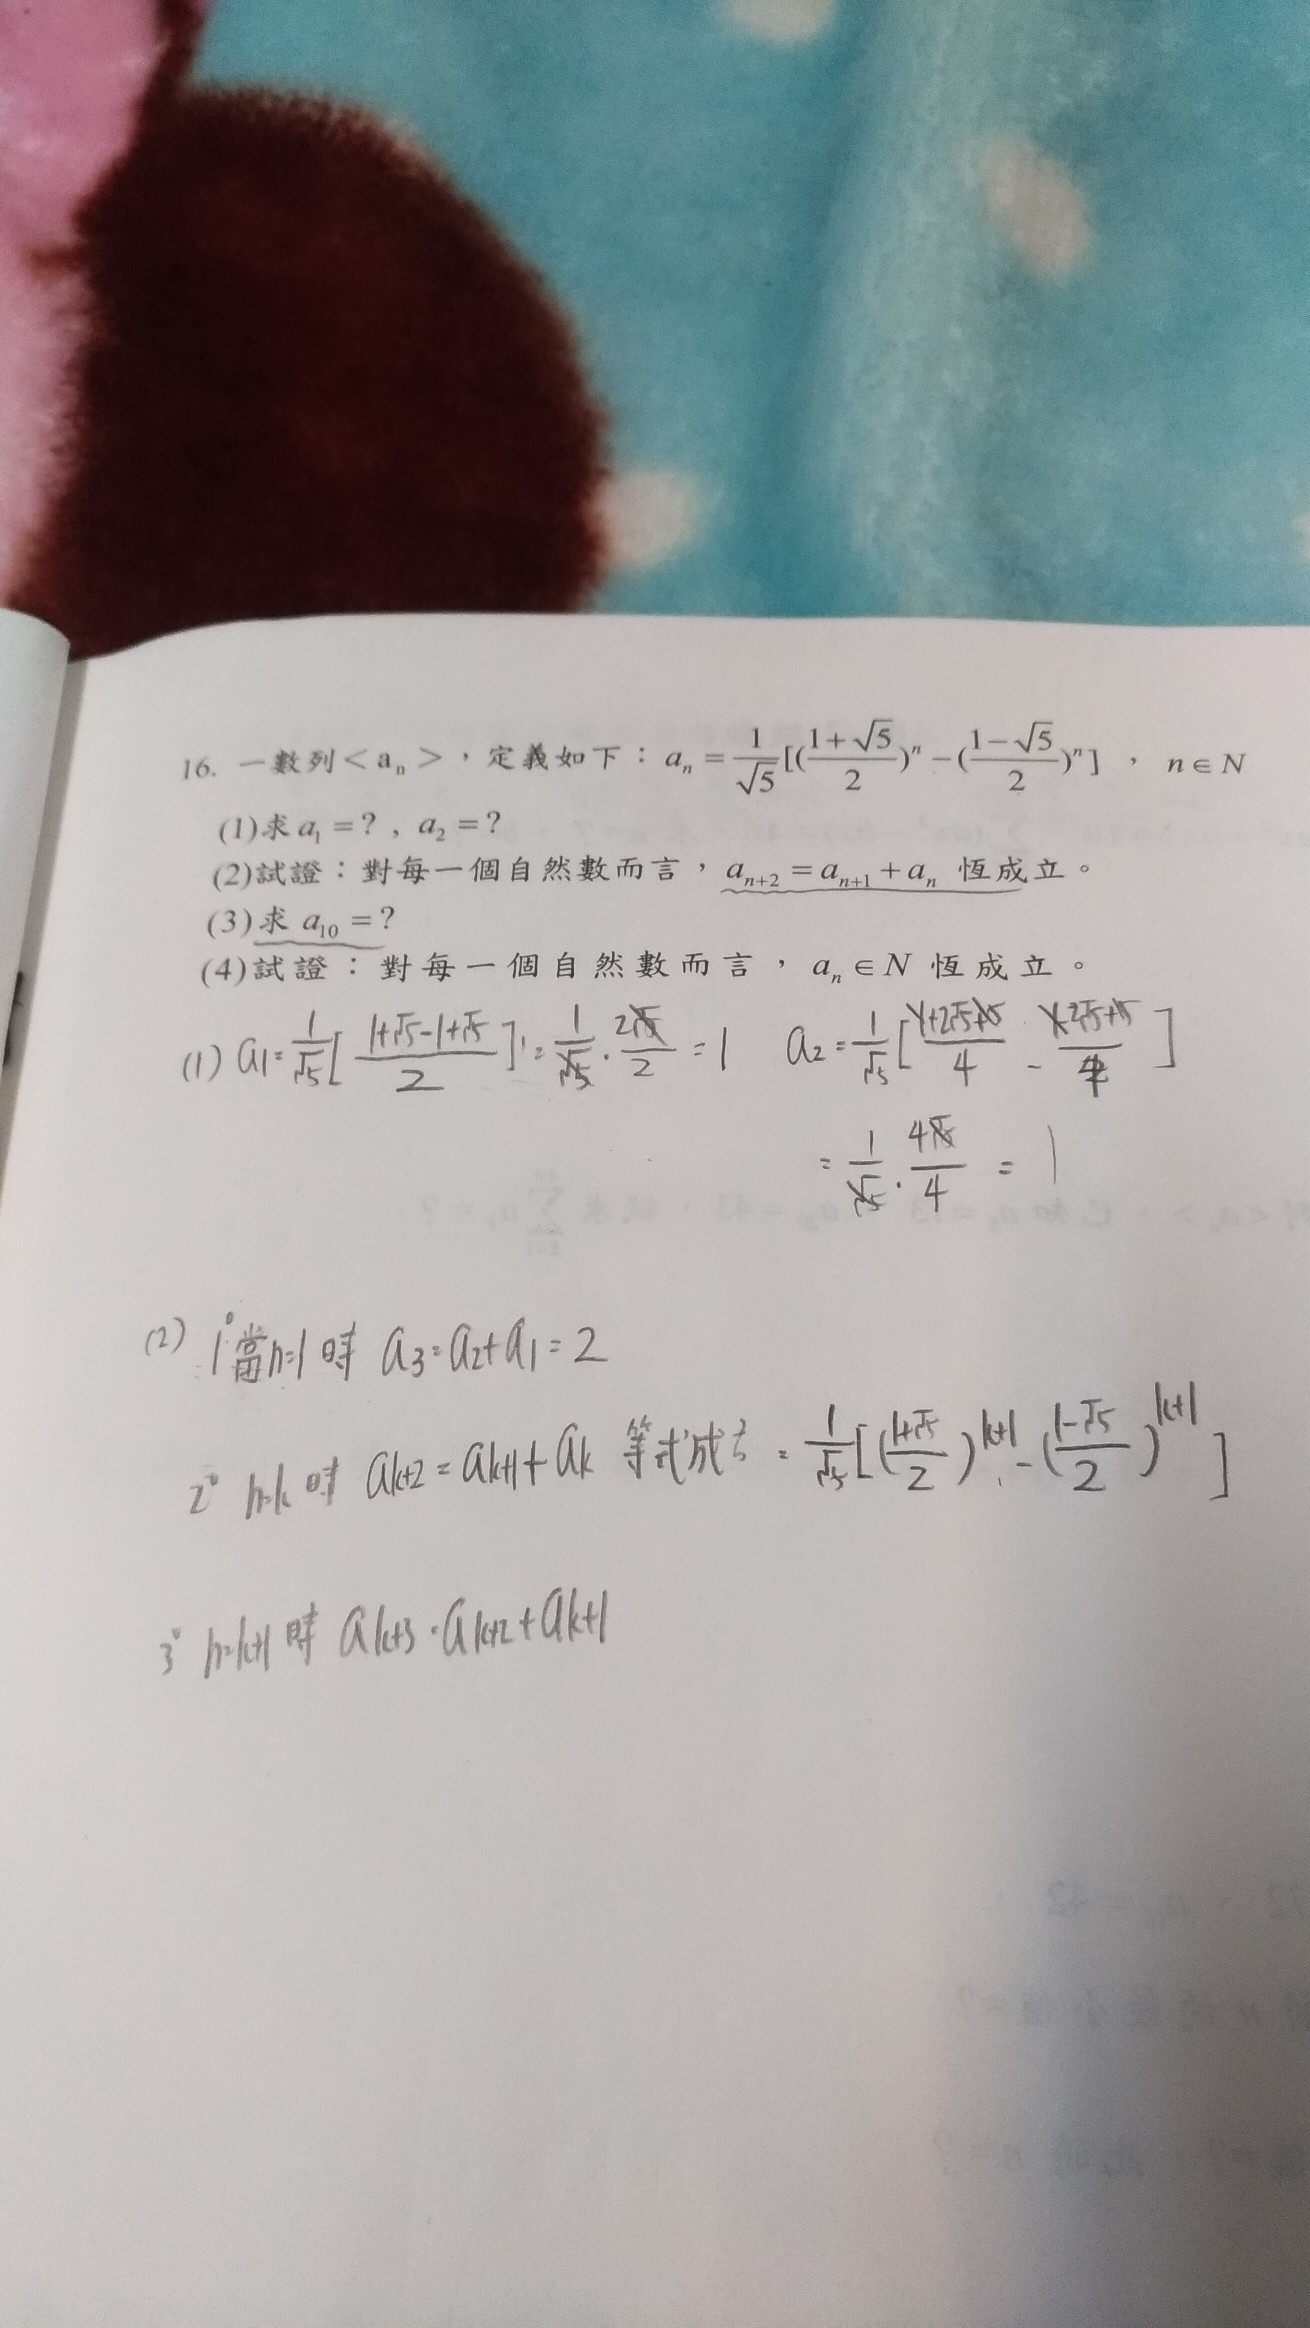 16. 一數列<aₙ>，定義如下：aₙ = 1/√5[((1+√5)/2)ⁿ − ((1−√5)/2)ⁿ]， n∈N
(1)求 a₁ =? , a₂ =?
(2)試證：對每一個自然數而言，aₙ₊₂ = aₙ₊₁ + aₙ 恆成立。
(3)求 a₁₀ =?
(4)試證：對每一個自然數而言，aₙ ∈ N 恆成立。
(1) a₁= 1/√5[(1+√5-1+√5)/2] = 1/√5 · 2√5/2 = 1 a₂= 1/√5[(1+2√5+5)/4 - (1-2√5+5)/4]
= 1/√5 · 4√5/4 = 1
(2) 1° 當n=1 時 a₃=a₂+a₁=2
2° n=k 時 aₖ₊₂=aₖ₊₁+aₖ 等式成立 = 1/√5[((1+√5)/2)ᵏ⁺¹ - ((1-√5)/2)ᵏ⁺¹]
3° n=k+1 時 aₖ₊₃=aₖ₊₂+aₖ₊₁